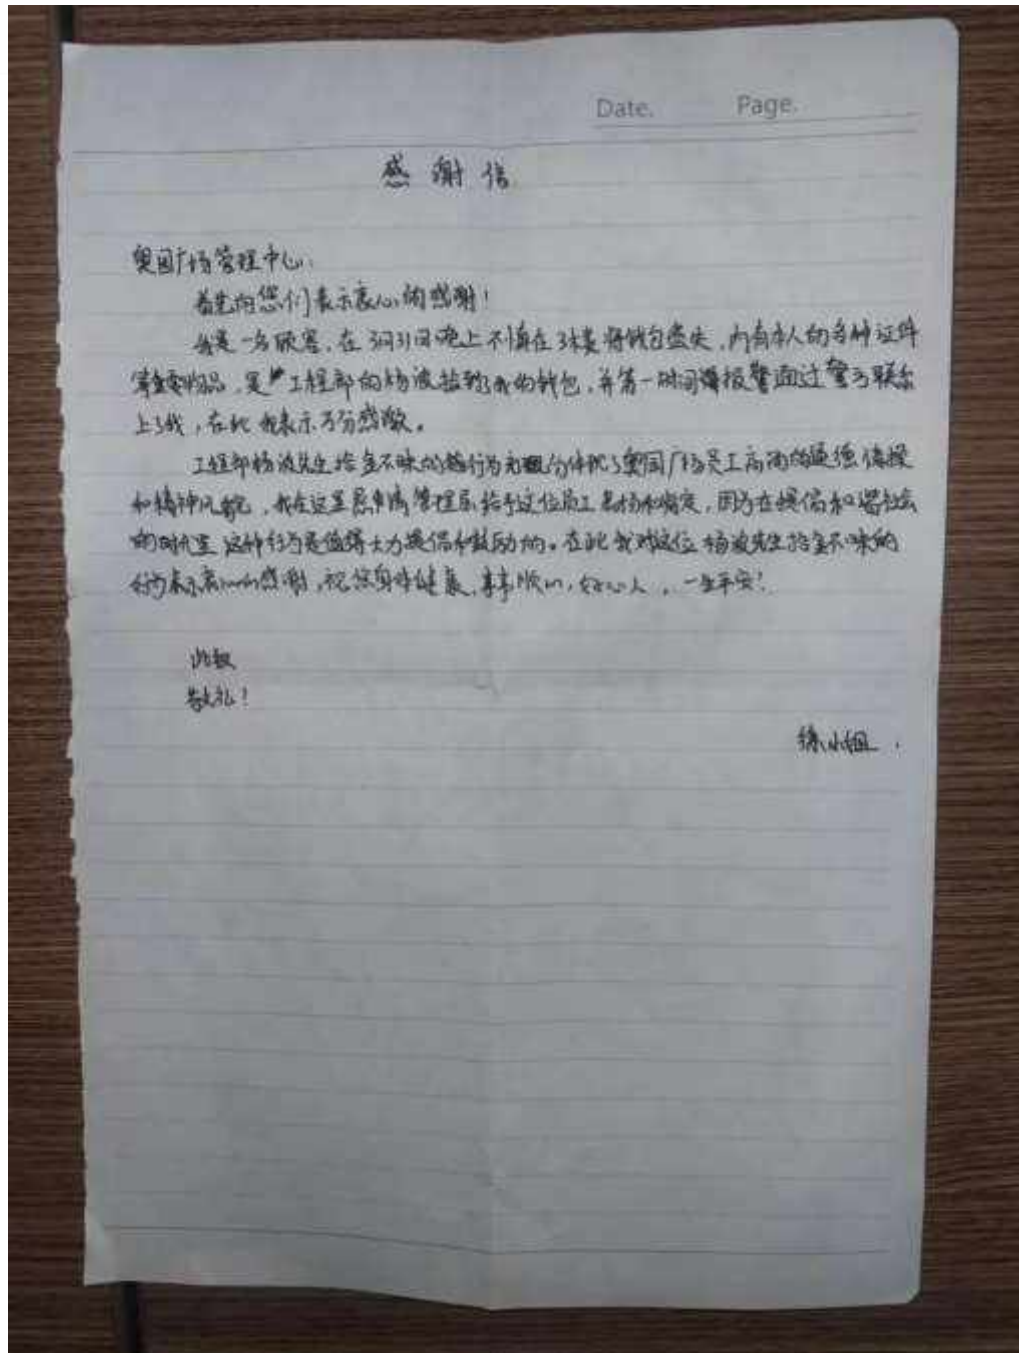 Date. Page.
感谢信
奥园广场管理中心:
首先向您们表示衷心的感谢!
我是一名顾客,在3月31日晚上不慎在3楼将钱包遗失,内有本人的各种证件
等重要物品,是工程部的杨波捡到了我的钱包,并第一时间报警通过警方联系
上了我,在此我表示万分感激。
工程部杨波先生拾金不昧的行为充分体现了奥园广场员工高尚的道德情操
和精神风貌,我在这里恳请管理层给予这位员工表扬和肯定,因为在提倡和谐社会
的时代里这种行为是值得大力提倡和鼓励的。在此我对这位杨波先生拾金不昧的
行为表示衷心的感谢,祝您身体健康,事事顺心,好心人,一生平安!
此致
敬礼!
小姐.